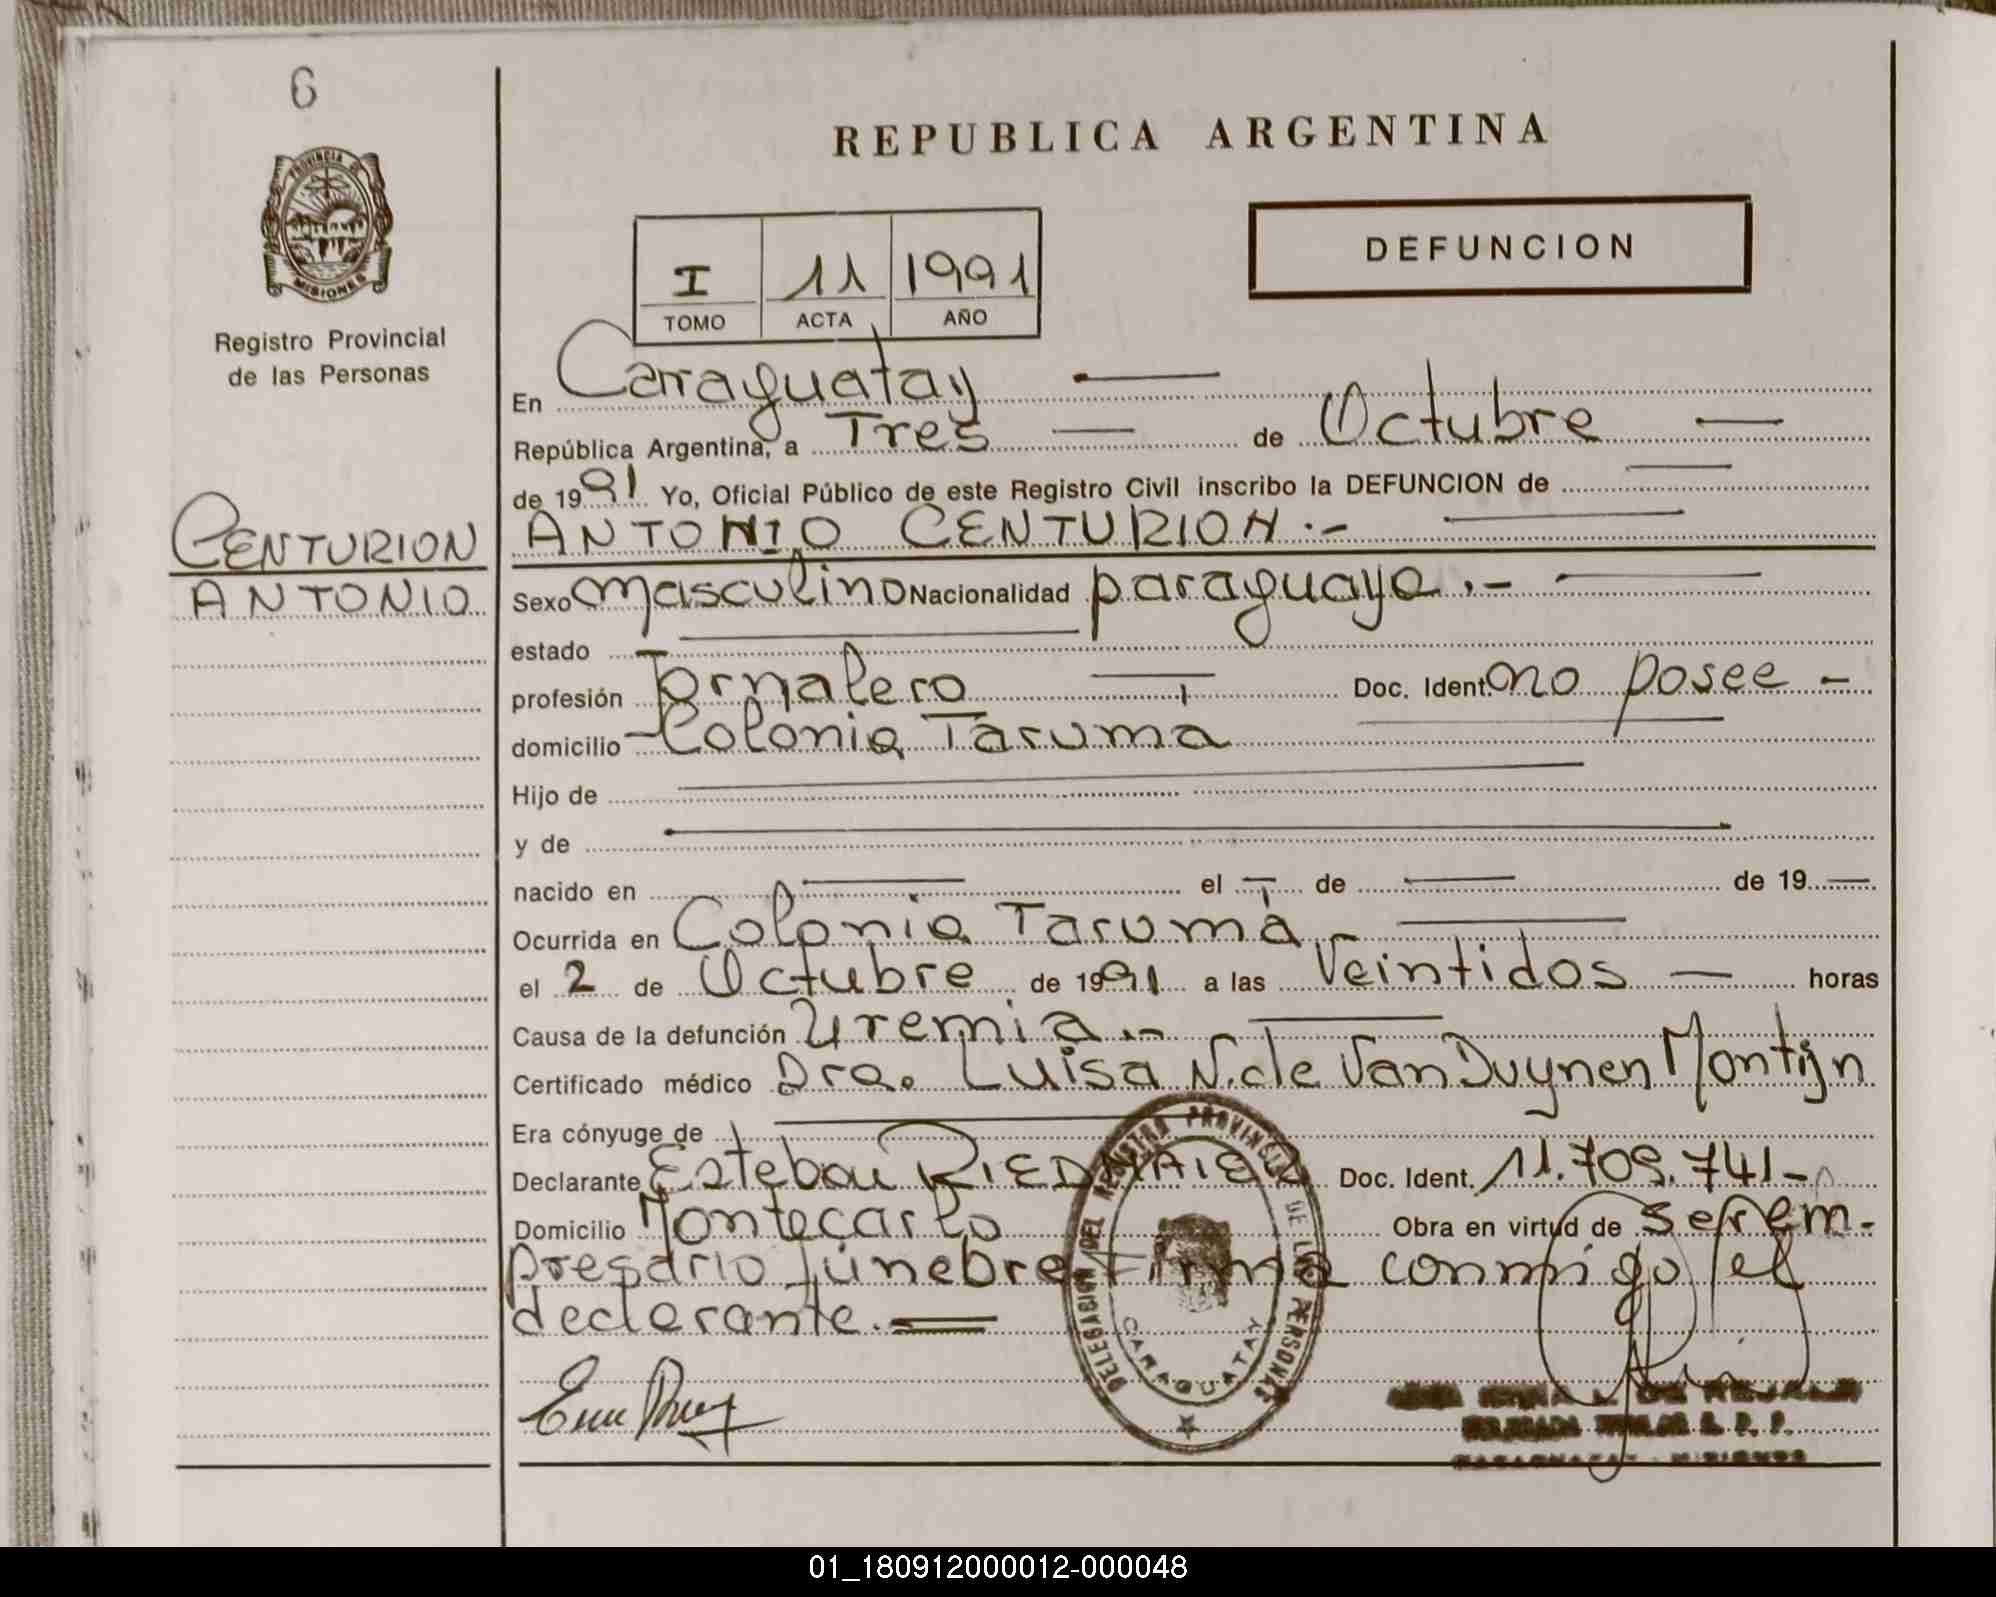 6
PROVINCIA DE
MISIONES
Registro Provincial
de las Personas
CENTURION
ANTONIO
REPUBLICA ARGENTINA
DEFUNCION
I 11 1991
TOMO ACTA AÑO
En Caraguatay
República Argentina, a Tres de Octubre
de 1991 Yo, Oficial Público de este Registro Civil inscribo la DEFUNCION de
ANTONIO CENTURION.-
Sexo masculino Nacionalidad paraguaya.-
estado
profesión Jornalero Doc. Ident. no posee -
domicilio Colonia Taruma
Hijo de
y de
nacido en el de de 19
Ocurrida en Colonia Tarumá
el 2 de Octubre de 1991 a las Veintidos horas
Causa de la defunción Uremia.-
Certificado médico Dra. Luisa N. de Van Duynen Montijn
Era cónyuge de
Declarante Esteban Doc. Ident. 11.709.741-
Domicilio Montecarlo Obra en virtud de ser em-
presario fúnebre firma conmigo el
declarante.
DELEGACION DEL REGISTRO PROVINCIAL DE LAS PERSONAS
CARAGUATAY
01_180912000012-000048